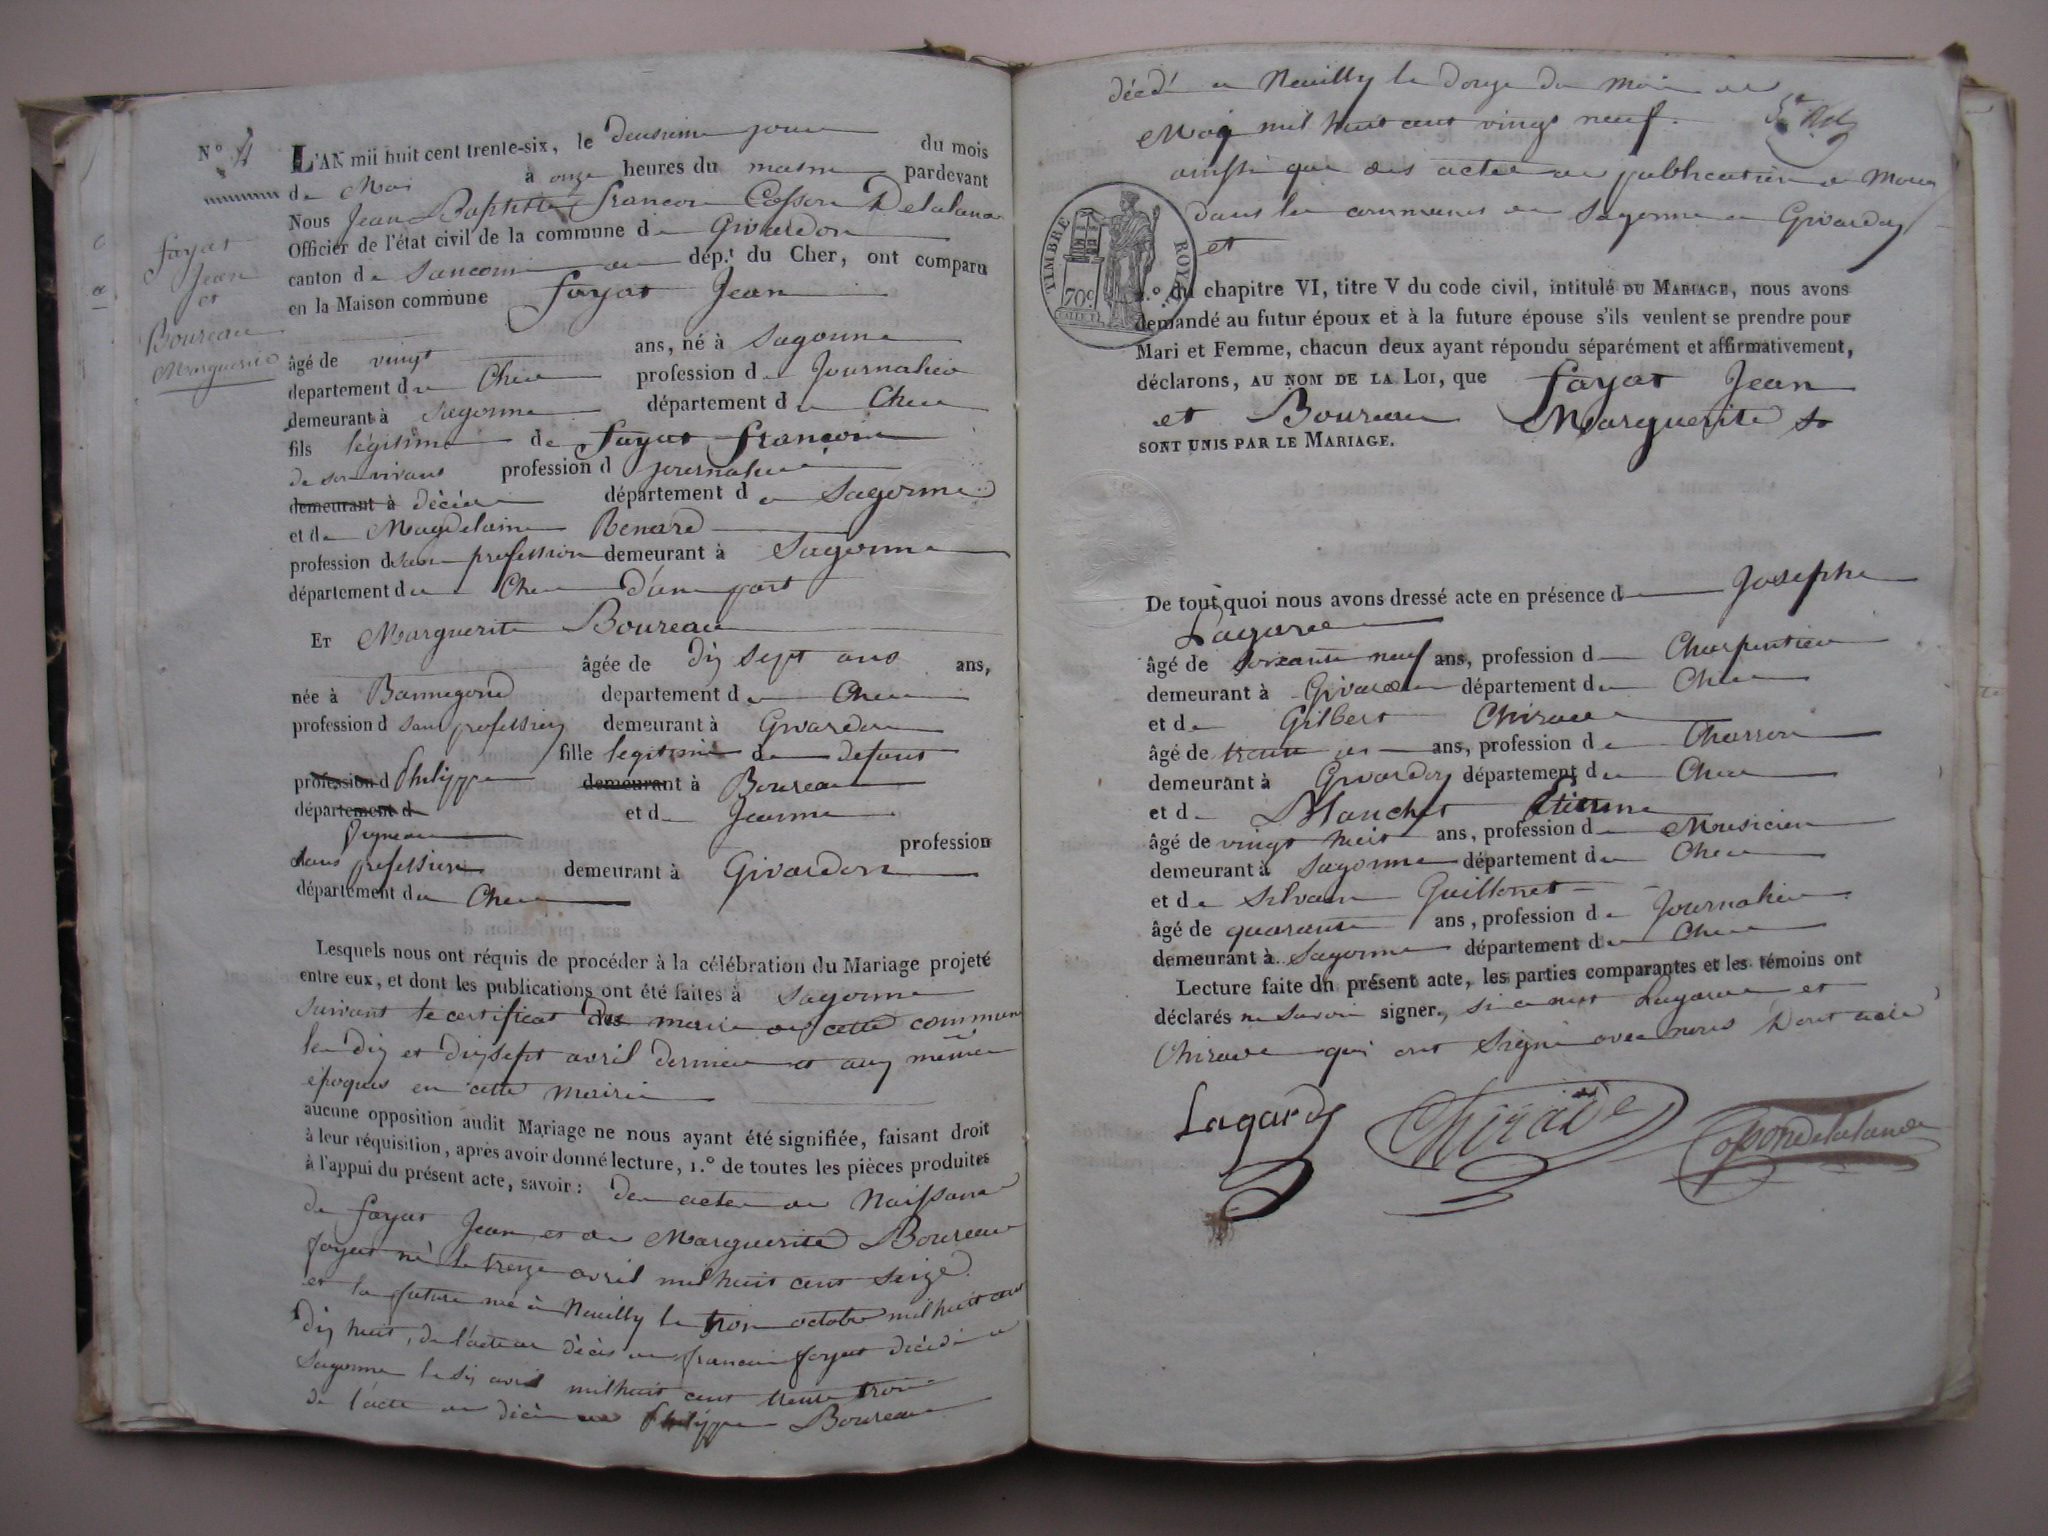 N° 4
L'AN mil huit cent trente-six, le deuxieme jour du mois
de Mai à onze heures du matin pardevant
Nous Jean Baptiste francois Cosson Delalande
Officier de l'état civil de la commune de Givardon
canton de Sancoins dép.t du Cher, ont comparu
en la Maison commune fayat Jean
fayat
Jean
et
Boureau
Marguerite
âgé de vingt ans, né à Sagonne
departement de Cher profession de Journalier
demeurant à Sagonne département de Cher
fils légitime de fayat francois
de son vivant profession d journalier
demeurant à décédé département de Sagonne
et de Magdelaine Benard
profession d sans profession demeurant à Sagonne
département de Cher d'une part
Et Marguerite Boureau
âgée de dix sept ans ans,
née à Bannegond departement de Cher
profession d sans profession demeurant à Givardon
fille legitime de defunt
profession d Philippe demeurant à Boureau
département d et de Jeanne
profession
sans profession demeurant à Givardon
département de Cher
Lesquels nous ont réquis de procéder à la célébration du Mariage projeté
entre eux, et dont les publications ont été faites à Sagonne
suivant le certificat du maire de cette commune
les dix et dix sept avril dernier et aux mêmes
époques en cette mairie
aucune opposition audit Mariage ne nous ayant été signifiée, faisant droit
à leur réquisition, après avoir donné lecture, 1.° de toutes les pièces produites
à l'appui du présent acte, savoir : des actes de Naissance
de fayat Jean et de Marguerite Boureau
fayat né le treize avril mil huit cent seize
et la future née à Neuilly le trois octobre mil huit cent
dix huit, de l'acte de décès de francois fayat décédé a
Sagonne le six avril mil huit cent trente trois
de l'acte de décès de Philippe Boureau
décédé a Neuilly le douze du mois de
Mai mil huit cent vingt neuf.
ainsi que des actes de publication de
dans les communes de Sagonne et Givardon
et
TIMBRE ROYAL
70c
2.° du chapitre VI, titre V du code civil, intitulé DU MARIAGE, nous avons
demandé au futur époux et à la future épouse s'ils veulent se prendre pour
Mari et Femme, chacun deux ayant répondu séparément et affirmativement,
déclarons, AU NOM DE LA LOI, que fayat Jean
et Boureau Marguerite
SONT UNIS PAR LE MARIAGE.
De tout quoi nous avons dressé acte en présence d Josephe
Lagarde
âgé de soixante neuf ans, profession de Charpentier
demeurant à Givardon département de Cher
et de Gilbert Chirade
âgé de trente ans, profession de Charron
demeurant à Givardon département de Cher
et de Blanchet Etienne
âgé de vingt huit ans, profession de Musicien
demeurant à Sagonne département de Cher
et de Silvain Guillonet
âgé de quarante ans, profession de Journalier
demeurant à Sagonne département de Cher
Lecture faite du présent acte, les parties comparantes et les témoins ont
déclarés ne savoir signer, si ce n'est Lagarde et
Chirade qui ont signé avec nous Dont acte
Lagarde Chirade Cossondelalande